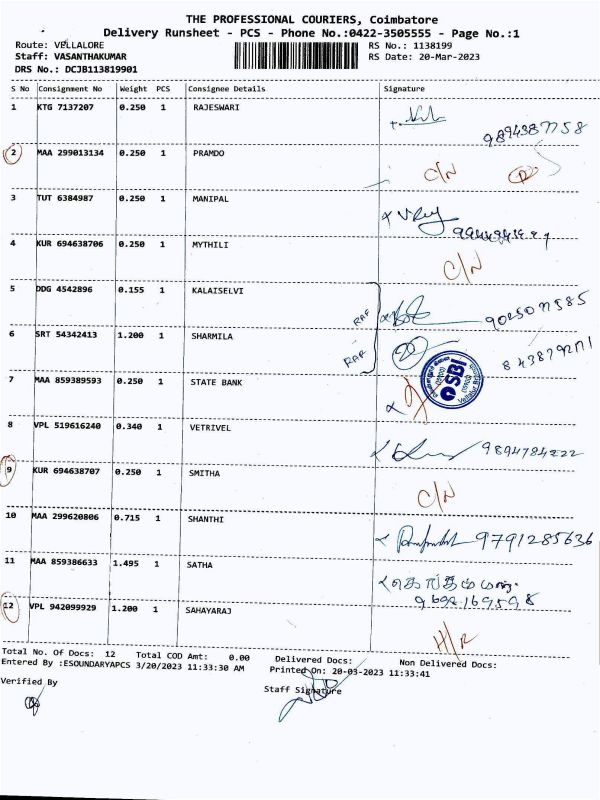 THE PROFESSIONAL COURIERS, Coimbatore
Delivery Runsheet - PCS - Phone No.:0422-3505555 - Page No.:1
Route: VELLALORE RS No.: 1138199
Staff: VASANTHAKUMAR RS Date: 20-Mar-2023
DRS No.: DCJB113819901
S No Consignment No Weight PCS Consignee Details Signature
1 KTG 7137207 0.250 1 RAJESWARI
9894387758
2 MAA 299013134 0.250 1 PRAMDO C/N
3 TUT 6384987 0.250 1 MANIPAL
4 KUR 694638706 0.250 1 MYTHILI C/N
5 DDG 4542896 0.155 1 KALAISELVI
RAF 9025071585
6 SRT 54342413 1.200 1 SHARMILA
RAF
7 MAA 859389593 0.250 1 STATE BANK SBI
8 VPL 519616240 0.340 1 VETRIVEL 9894784222
9 KUR 694638707 0.250 1 SMITHA C/N
10 MAA 299620806 0.715 1 SHANTHI 9791285636
11 MAA 859386633 1.495 1 SATHA
12 VPL 942099929 1.200 1 SAHAYARAJ H/R
Total No. Of Docs: 12 Total COD Amt: 0.00 Delivered Docs: Non Delivered Docs:
Entered By :ESOUNDARYAPCS 3/20/2023 11:33:30 AM Printed On: 20-03-2023 11:33:41
Verified By Staff Signature